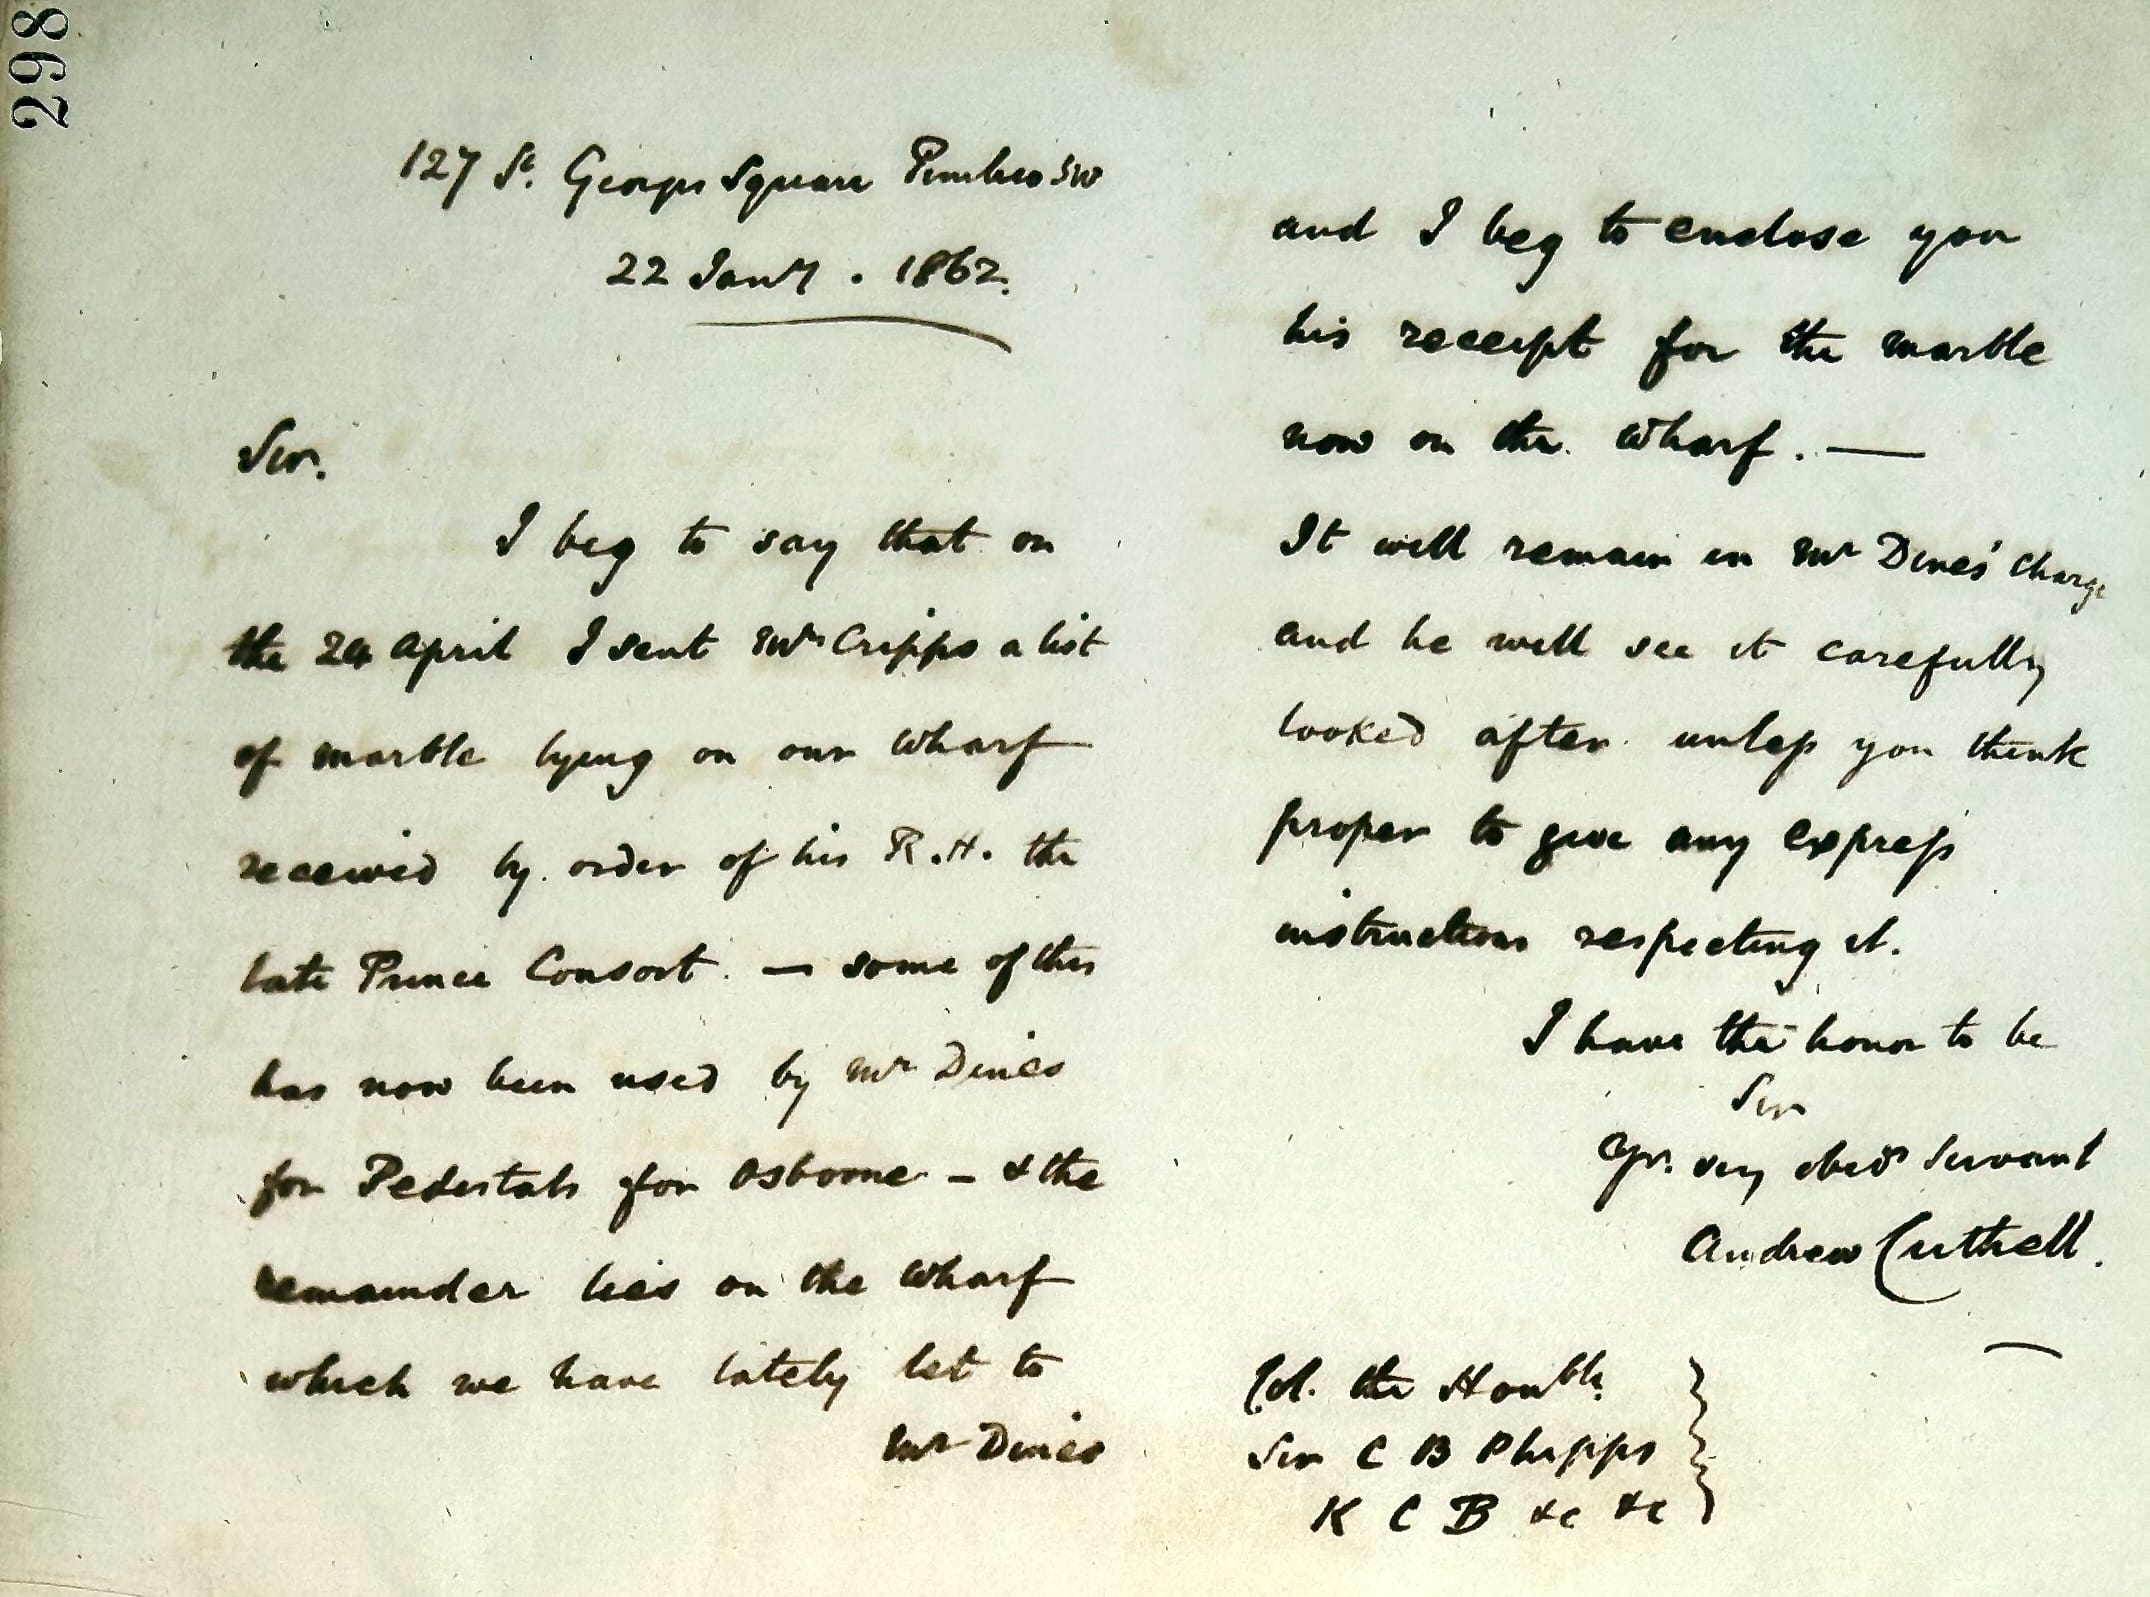 298
127 St. Georges Square Pimlico SW
22 Jany. 1862.
Sir.
I beg to say that on
the 24 April I sent Mr Cripps a list
of marble lying on our Wharf
received by order of his R.H. the
late Prince Consort. — some of this
has now been used by Mr Dines
for Pedestals for Osborne — & the
remainder lies on the Wharf
which we have lately let to
Mr Dines
and I beg to enclose you
his receipt for the marble
now on the Wharf. —
It will remain in Mr Dines' charge
and he will see it carefully
looked after unless you think
proper to give any express
instructions respecting it.
I have the honor to be
Sir
Yr. very obedt Servant
Andrew Cuthell.
Col. the Honble.
Sir C B Phipps
K C B &c &c